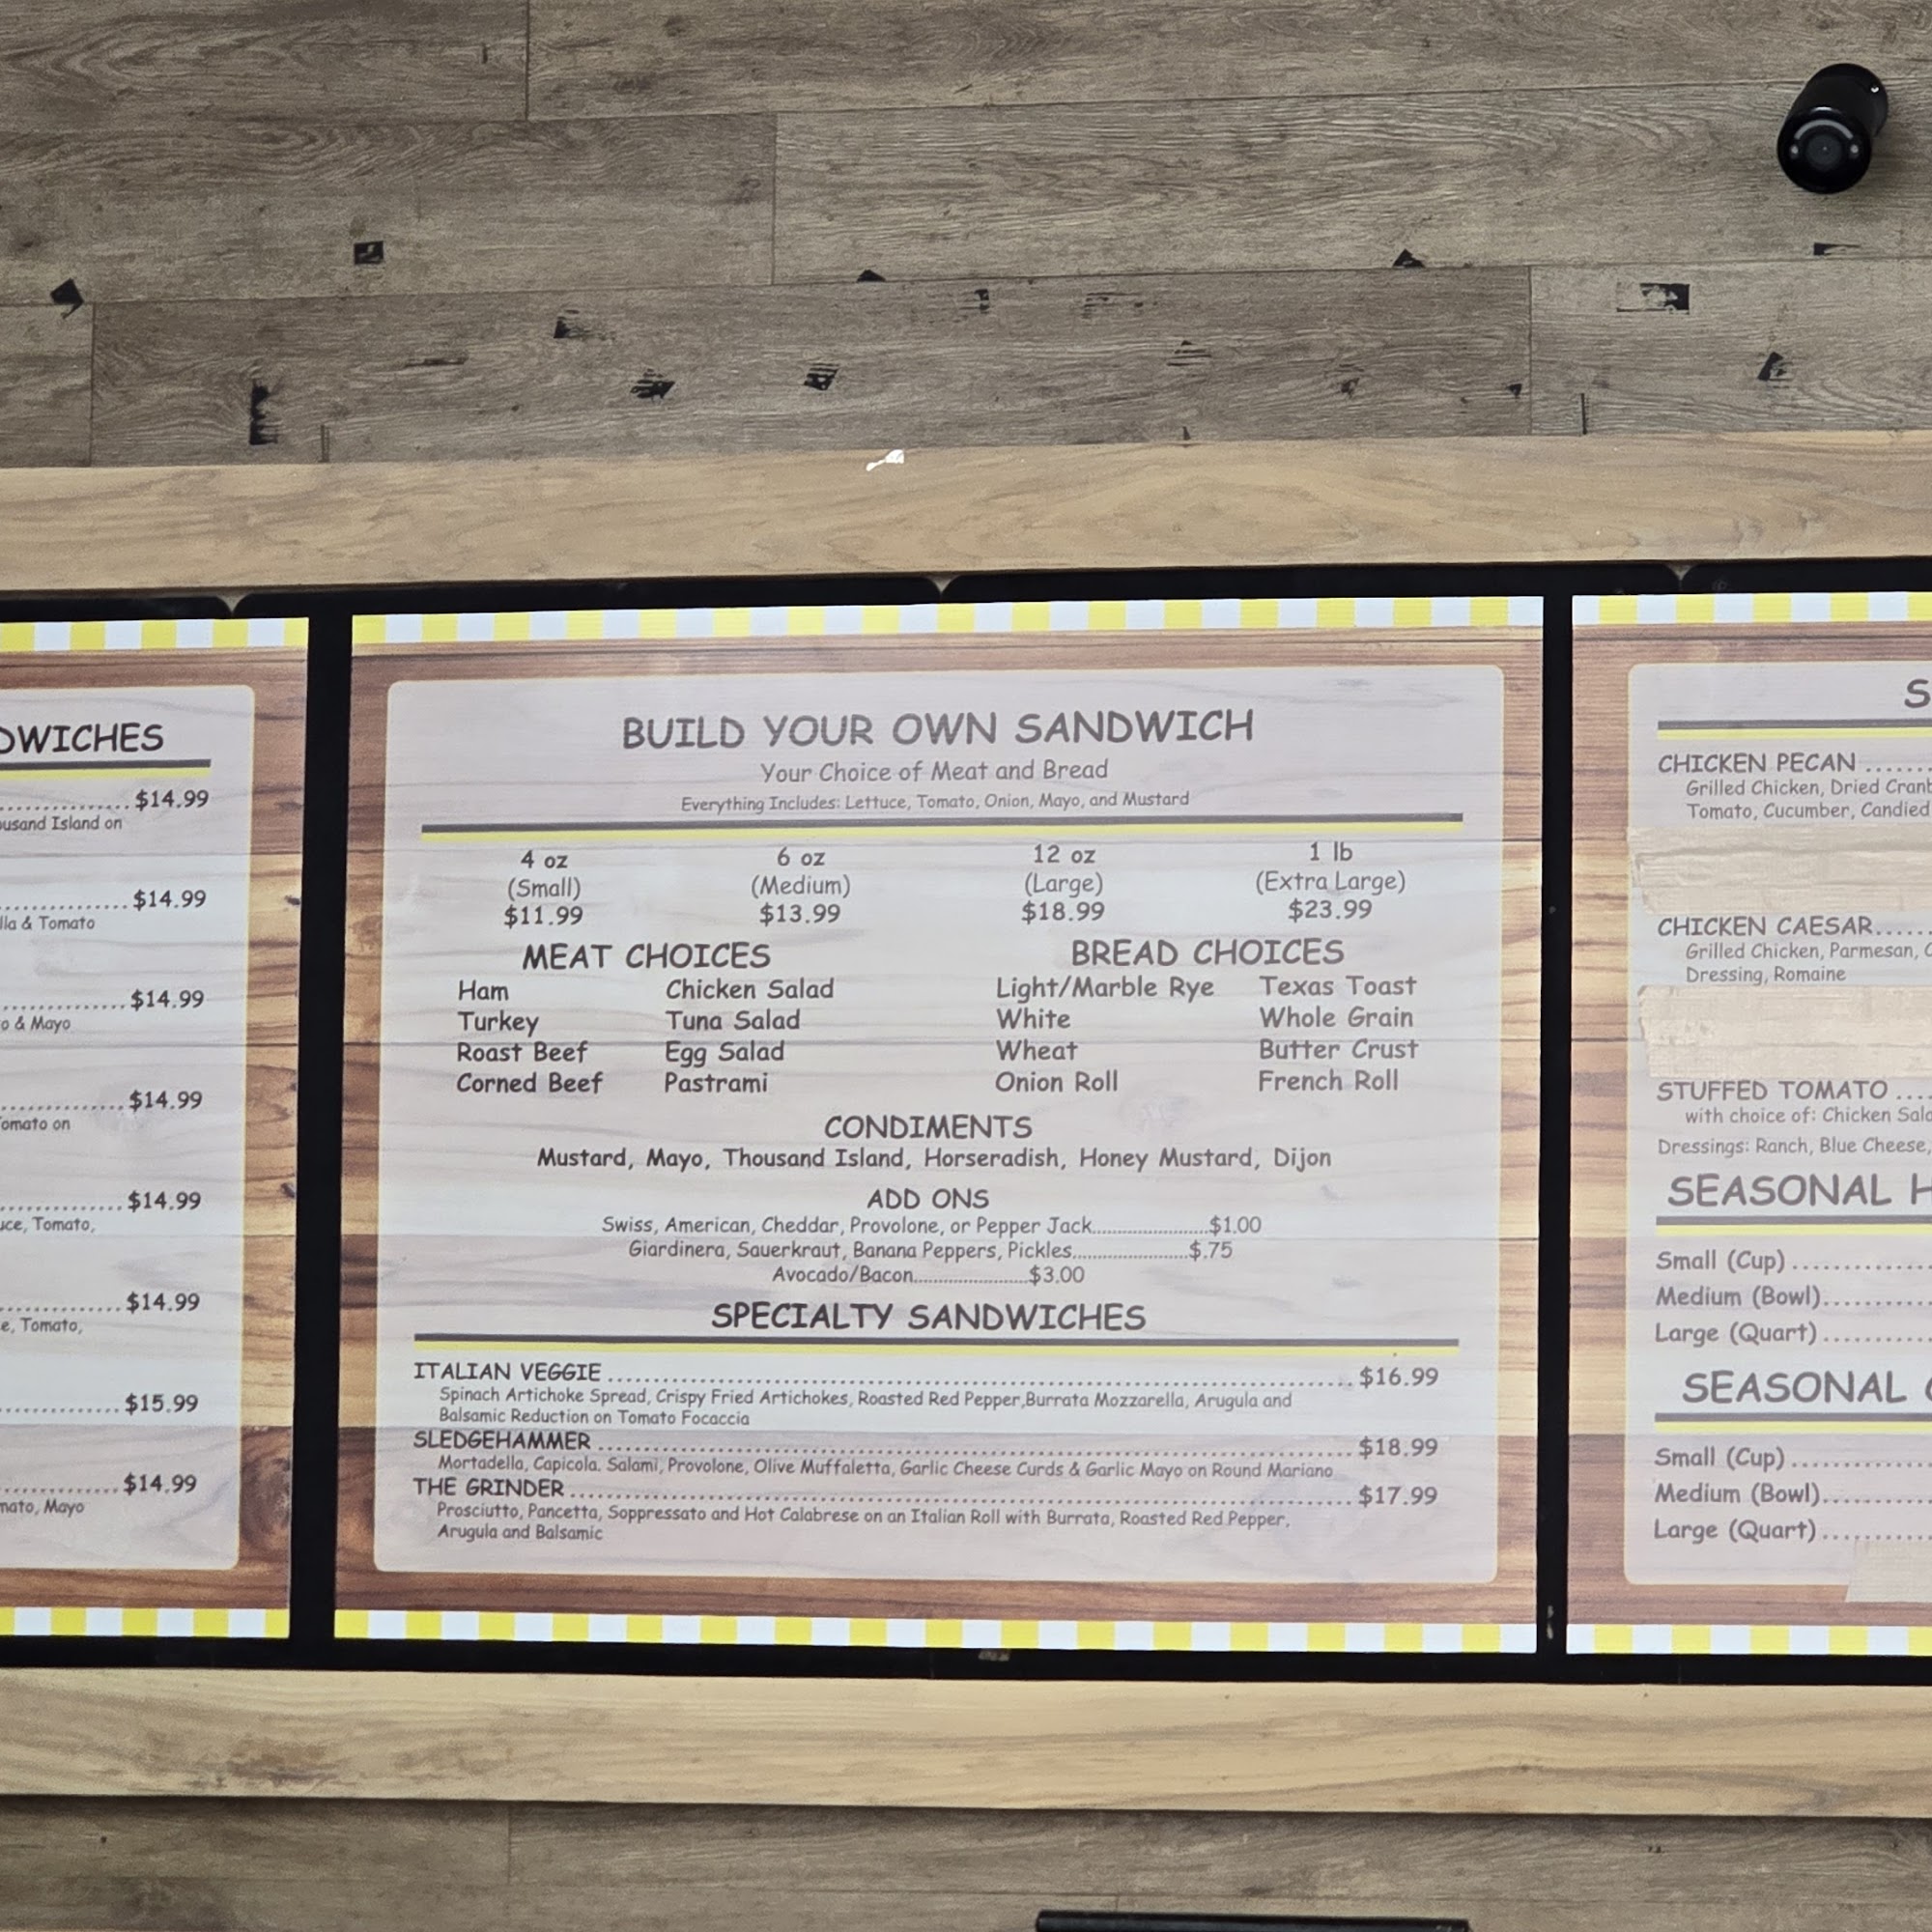 DWICHES
$14.99
ousand Island on
$14.99
lla & Tomato
$14.99
o & Mayo
$14.99
omato on
$14.99
uce, Tomato,
$14.99
e, Tomato,
$15.99
$14.99
mato, Mayo
BUILD YOUR OWN SANDWICH
Your Choice of Meat and Bread
Everything Includes: Lettuce, Tomato, Onion, Mayo, and Mustard
4 oz 6 oz 12 oz 1 lb
(Small) (Medium) (Large) (Extra Large)
$11.99 $13.99 $18.99 $23.99
MEAT CHOICES BREAD CHOICES
Ham Chicken Salad Light/Marble Rye Texas Toast
Turkey Tuna Salad White Whole Grain
Roast Beef Egg Salad Wheat Butter Crust
Corned Beef Pastrami Onion Roll French Roll
CONDIMENTS
Mustard, Mayo, Thousand Island, Horseradish, Honey Mustard, Dijon
ADD ONS
Swiss, American, Cheddar, Provolone, or Pepper Jack.......................$1.00
Giardinera, Sauerkraut, Banana Peppers, Pickles.......................$.75
Avocado/Bacon.......................$3.00
SPECIALTY SANDWICHES
ITALIAN VEGGIE ....................... $16.99
Spinach Artichoke Spread, Crispy Fried Artichokes, Roasted Red Pepper,Burrata Mozzarella, Arugula and
Balsamic Reduction on Tomato Focaccia
SLEDGEHAMMER ....................... $18.99
Mortadella, Capicola. Salami, Provolone, Olive Muffaletta, Garlic Cheese Curds & Garlic Mayo on Round Mariano
THE GRINDER ....................... $17.99
Prosciutto, Pancetta, Soppressato and Hot Calabrese on an Italian Roll with Burrata, Roasted Red Pepper,
Arugula and Balsamic
S
CHICKEN PECAN .......
Grilled Chicken, Dried Cranb
Tomato, Cucumber, Candied
CHICKEN CAESAR......
Grilled Chicken, Parmesan, C
Dressing, Romaine
STUFFED TOMATO ....
with choice of: Chicken Sala
Dressings: Ranch, Blue Cheese,
SEASONAL H
Small (Cup) ...............
Medium (Bowl)............
Large (Quart) ............
SEASONAL
Small (Cup) ...............
Medium (Bowl)............
Large (Quart) ............